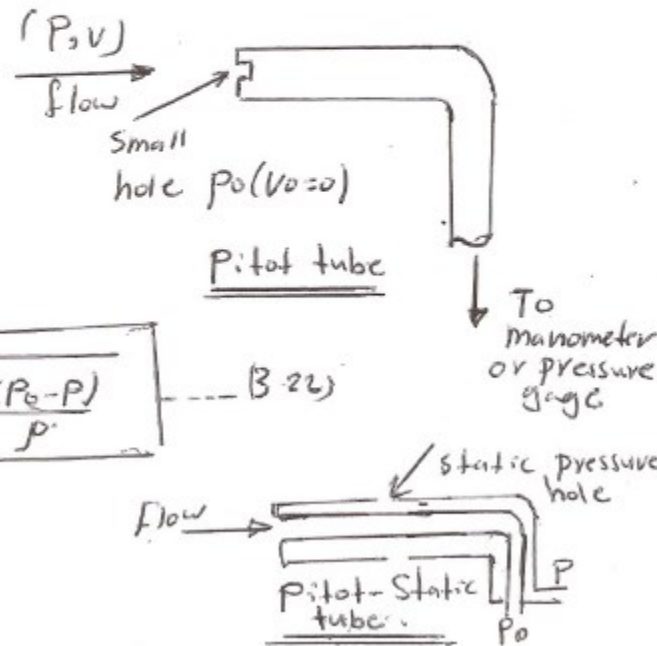 (P,V)
flow
small
hole Po(Vo=0)
Pitot tube
To
manometer
or pressure
gage
(Po-P)
ρ
---- (3-22)
static pressure
hole
flow
Pitot-Static
tube.
P
Po